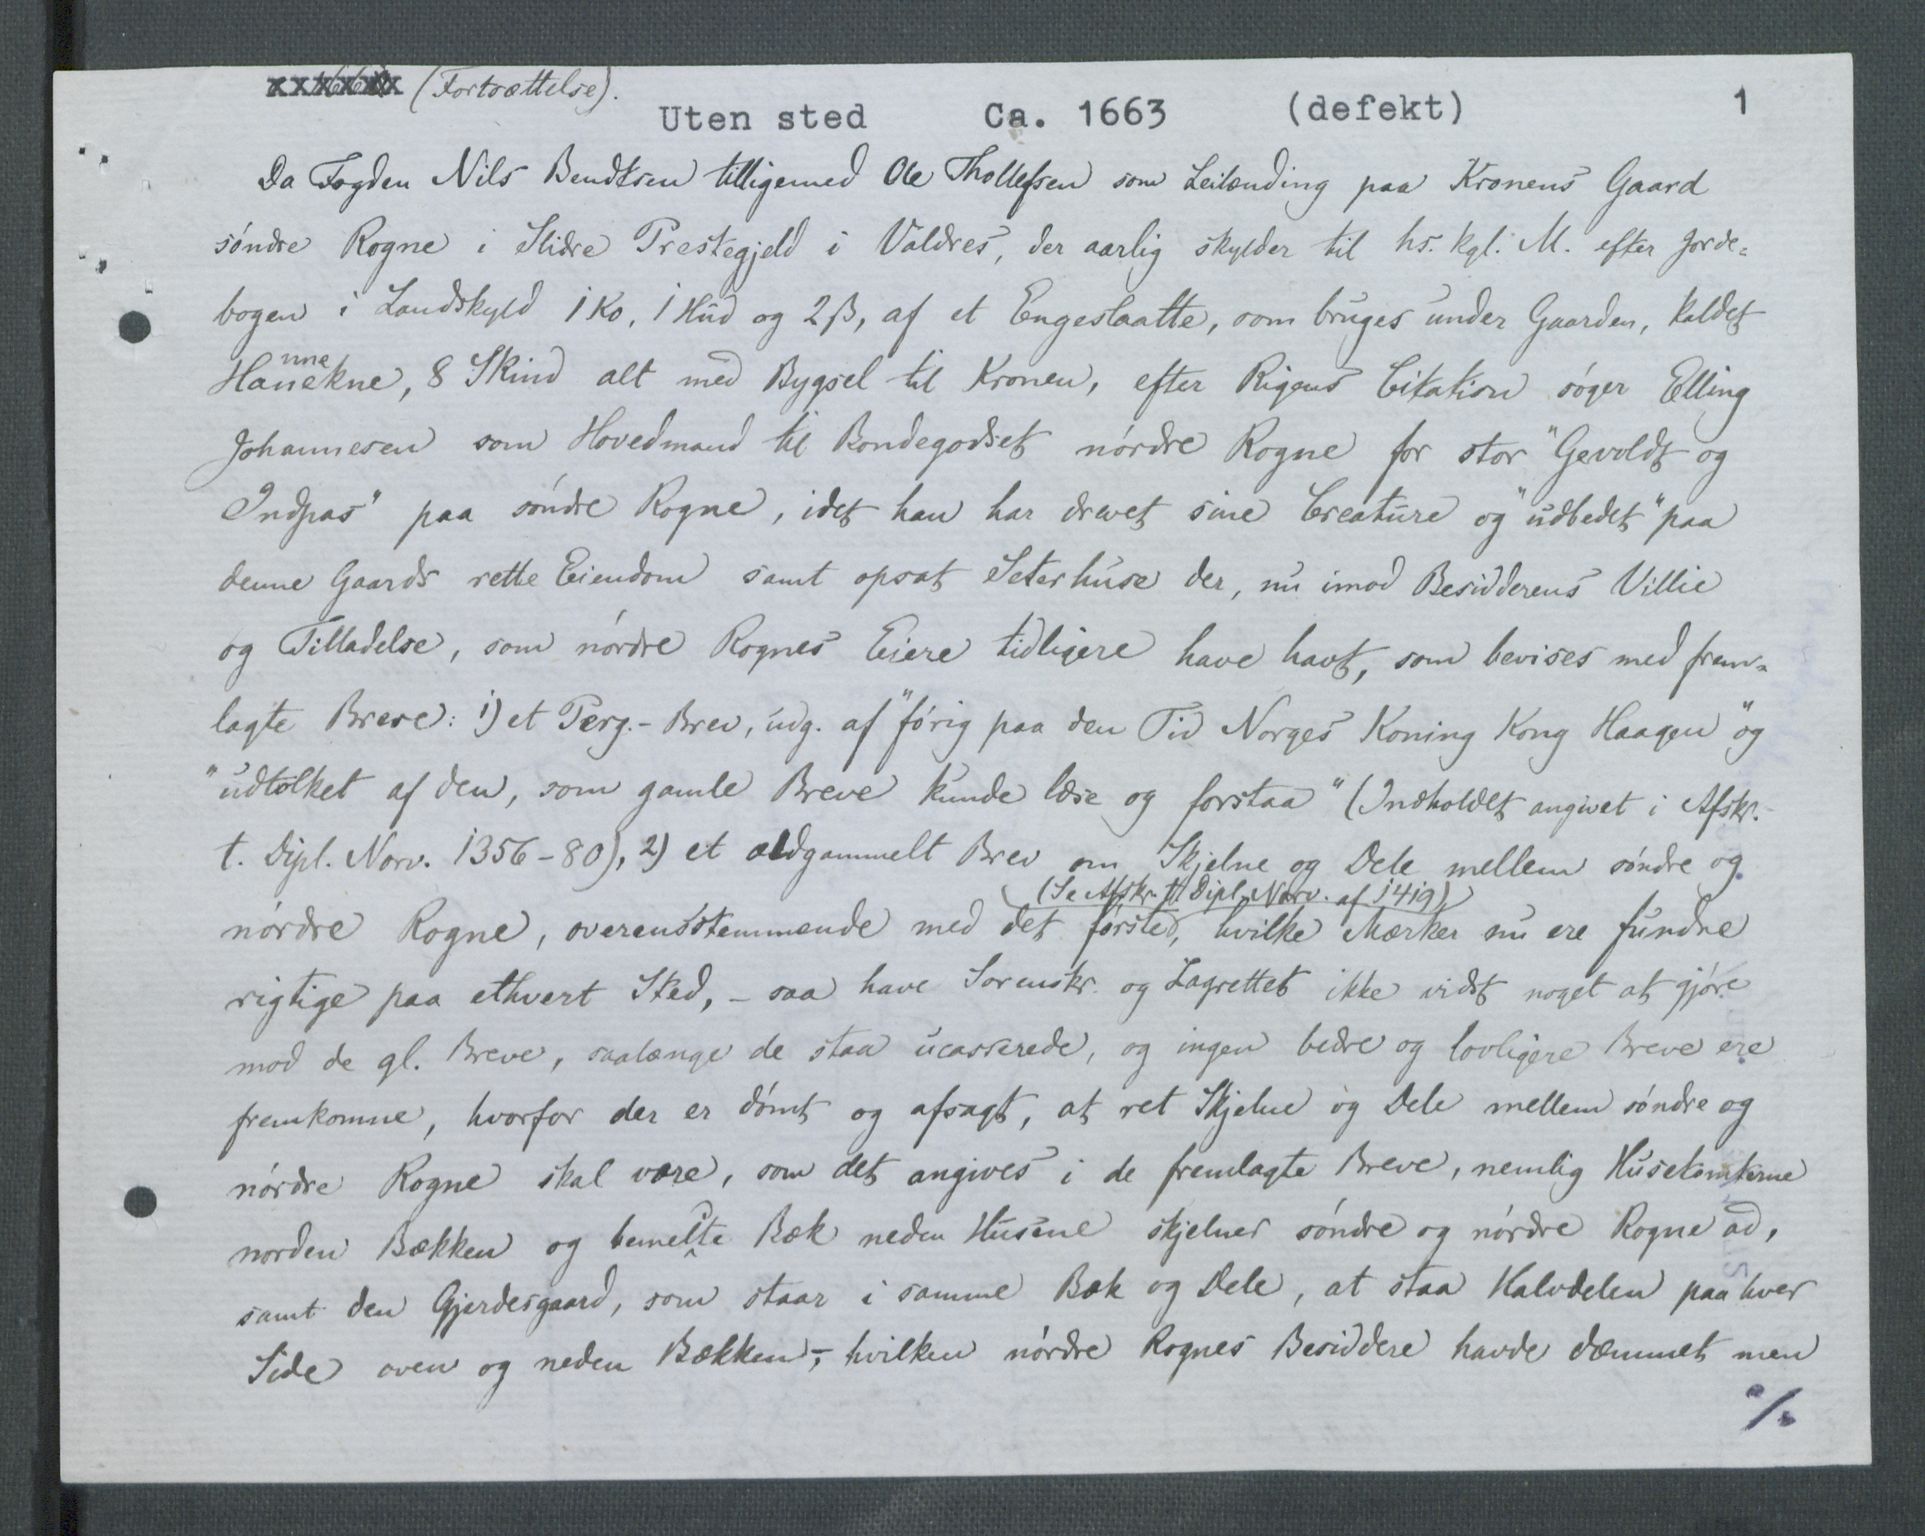 (Fortsættelse).
Uten sted Ca. 1663 (defekt) 1
Da Fogden Nils Bendtsen tilligemed Ole Thollefsen som Leilænding paa Kronens Gaard
söndre Rogne i Slidre Prestegjeld i Valdres, der aarlig skylder til hs. kgl. M. efter Jorde=
bogen i Landskyld 1 Ko, 1 Hud og 2 β, af et Engeslaatte, som bruges under Gaarden, kaldet
nne
Hanekne, 8 Skind alt med Bygsel til Kronen, efter Rigens Citation söger Elling
Johannesen som Hovedmand til Bondegodset nördre Rogne for stor "Gevoldt og
Indpas" paa söndre Rogne, idet han har drevet sine Creature og "udbedet" paa
denne Gaards rette Eiendom samt opsat Seterhuse der, nu imod Besidderens Villie
og Tilladelse, som nördre Rognes Eiere tidligere have havt, som bevises med frem=
lagte Breve: 1) et Perg.-Brev, udg. af "förig paa den Tid Norges Koning Kong Haagen" og
"udtolket af den, som gamle Breve kunde læse og forstaa" (Indholdet angivet i Afskr.
t. Dipl. Norv. 1356-80), 2) et ældgammelt Brev om Skjelne og Dele mellem söndre og
(Se Afskr. t. Dipl. Norv. af 1419)
nördre Rogne, overensstemmende med det förste, hvilke Mærker nu ere fundne
rigtige paa ethvert Sted, - saa have Sorenskr. og Lagrettet ikke vidst noget at gjöre
mod de gl. Breve, saalænge de staa ucasserede, og ingen bedre og lovligere Breve ere
fremkomne, hvorfor der er dömt og afsagt, at ret Skjelne og Dele mellem söndre og
nördre Rogne skal være, som det angives i de fremlagte Breve, nemlig Husetomterne
norden Bækken og bemeldte Bæk neden Husene skjelner söndre og nördre Rogne ad,
samt den Gjerdesgaard, som staar i samme Bæk og Dele, at staa Halvdelen paa hver
Side oven og neden Bækken, - hvilken nördre Rognes Besiddere havde dæmmet men